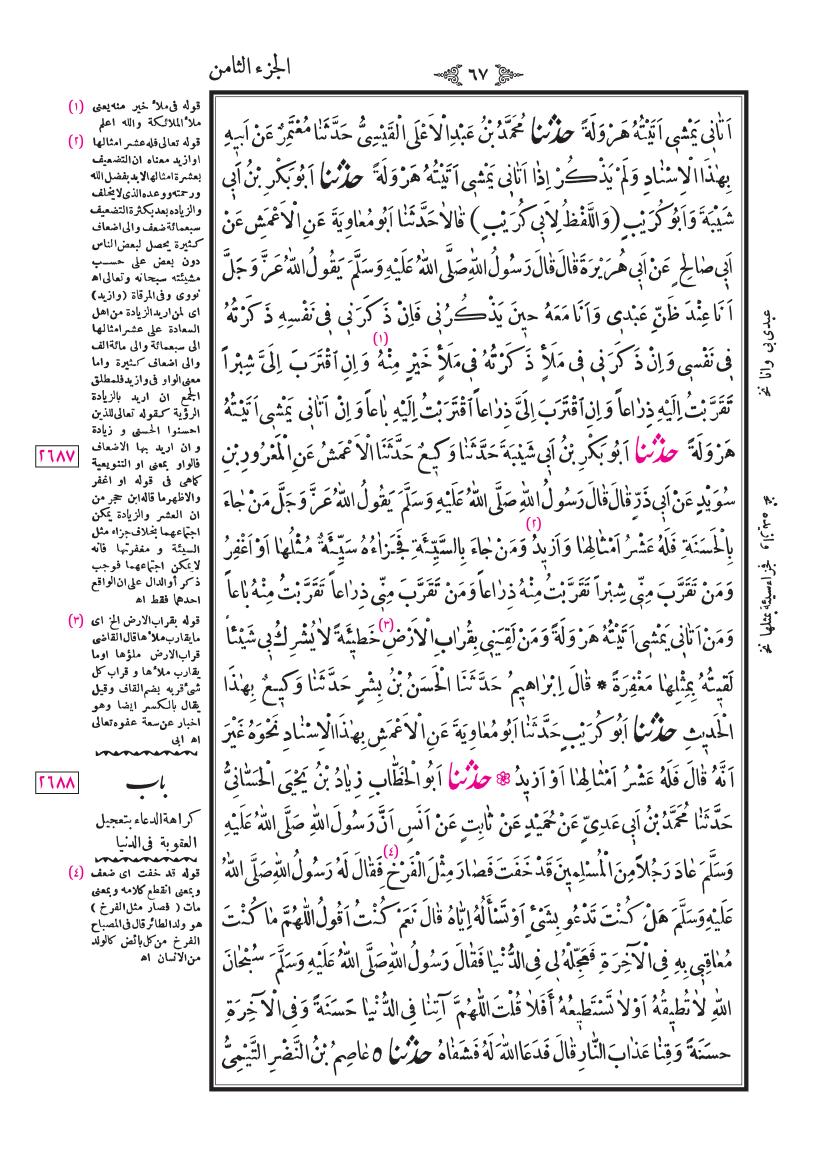 ٦٧
الجزء الثامن
اَتَانِى يَمْشِى اَتَيْتُهُ هَرْوَلَةً حدثنا مُحَمَّدُ بْنُ عَبْدِ الْاَعْلَى الْقَيْسِىُّ حَدَّثَنَا مُعْتَمِرٌ عَنْ اَبِيهِ
بِهٰذَا الْاِسْنَادِ وَلَمْ يَذْكُرْ اِذَا اَتَانِى يَمْشِى اَتَيْتُهُ هَرْوَلَةً حدثنا اَبُوبَكْرِ بْنُ اَبِى
شَيْبَةَ وَاَبُو كُرَيْبٍ (وَاللَّفْظُ لِاَبِى كُرَيْبٍ) قَالَا حَدَّثَنَا اَبُو مُعَاوِيَةَ عَنِ الْاَعْمَشِ عَنْ
اَبِى صَالِحٍ عَنْ اَبِى هُرَيْرَةَ قَالَ قَالَ رَسُولُ اللهِ صَلَّى اللهُ عَلَيْهِ وَسَلَّمَ يَقُولُ اللهُ عَزَّ وَجَلَّ
اَنَا عِنْدَ ظَنِّ عَبْدِى وَاَنَا مَعَهُ حِينَ يَذْكُرُنِى فَاِنْ ذَكَرَنِى فِى نَفْسِهِ ذَكَرْتُهُ
فِى نَفْسِى وَاِنْ ذَكَرَنِى فِى مَلَأٍ ذَكَرْتُهُ فِى مَلَأٍ خَيْرٍ مِنْهُ (١) وَاِنِ اقْتَرَبَ اِلَىَّ شِبْراً
تَقَرَّبْتُ اِلَيْهِ ذِرَاعاً وَاِنِ اقْتَرَبَ اِلَىَّ ذِرَاعاً اقْتَرَبْتُ اِلَيْهِ بَاعاً وَاِنْ اَتَانِى يَمْشِى اَتَيْتُهُ
هَرْوَلَةً حدثنا اَبُو بَكْرِ بْنُ اَبِى شَيْبَةَ حَدَّثَنَا وَكِيعٌ حَدَّثَنَا الْاَعْمَشُ عَنِ الْمَعْرُورِ بْنِ
سُوَيْدٍ عَنْ اَبِى ذَرٍّ قَالَ قَالَ رَسُولُ اللهِ صَلَّى اللهُ عَلَيْهِ وَسَلَّمَ يَقُولُ اللهُ عَزَّ وَجَلَّ مَنْ جَاءَ
بِالْحَسَنَةِ فَلَهُ عَشْرُ اَمْثَالِهَا وَاَزِيدُ (٢) وَمَنْ جَاءَ بِالسَّيِّئَةِ فَجَزَاءُهُ سَيِّئَةٌ مِثْلُهَا اَوْ اَغْفِرُ
وَمَنْ تَقَرَّبَ مِنِّى شِبْراً تَقَرَّبْتُ مِنْهُ ذِرَاعاً وَمَنْ تَقَرَّبَ مِنِّى ذِرَاعاً تَقَرَّبْتُ مِنْهُ بَاعاً
وَمَنْ اَتَانِى يَمْشِى اَتَيْتُهُ هَرْوَلَةً وَمَنْ لَقِيَنِى بِقُرَابِ الْاَرْضِ (٣) خَطِيئَةً لَا يُشْرِكُ بِى شَيْئاً
لَقِيتُهُ بِمِثْلِهَا مَغْفِرَةً * قَالَ اِبْرَاهِيمُ حَدَّثَنَا الْحَسَنُ بْنُ بِشْرٍ حَدَّثَنَا وَكِيعٌ بِهٰذَا
الْحَدِيثِ حدثنا اَبُو كُرَيْبٍ حَدَّثَنَا اَبُو مُعَاوِيَةَ عَنِ الْاَعْمَشِ بِهٰذَا الْاِسْنَادِ نَحْوَهُ غَيْرَ
اَنَّهُ قَالَ فَلَهُ عَشْرُ اَمْثَالِهَا اَوْ اَزِيدُ ❁ حدثنا اَبُو الْخَطَّابِ زِيَادُ بْنُ يَحْيَى الْحَسَّانِىُّ
حَدَّثَنَا مُحَمَّدُ بْنُ اَبِى عَدِىٍّ عَنْ حُمَيْدٍ عَنْ ثَابِتٍ عَنْ اَنَسٍ اَنَّ رَسُولَ اللهِ صَلَّى اللهُ عَلَيْهِ
وَسَلَّمَ عَادَ رَجُلاً مِنَ الْمُسْلِمِينَ قَدْ خَفَتَ فَصَارَ مِثْلَ الْفَرْخِ (٤) فَقَالَ لَهُ رَسُولُ اللهِ صَلَّى اللهُ
عَلَيْهِ وَسَلَّمَ هَلْ كُنْتَ تَدْعُو بِشَىْءٍ اَوْ تَسْأَلُهُ اِيَّاهُ قَالَ نَعَمْ كُنْتُ اَقُولُ اللّٰهُمَّ مَا كُنْتَ
مُعَاقِبِى بِهِ فِى الْآخِرَةِ فَعَجِّلْهُ لِى فِى الدُّنْيَا فَقَالَ رَسُولُ اللهِ صَلَّى اللهُ عَلَيْهِ وَسَلَّمَ سُبْحَانَ
اللهِ لَا تُطِيقُهُ اَوْ لَا تَسْتَطِيعُهُ أَفَلَا قُلْتَ اللّٰهُمَّ آتِنَا فِى الدُّنْيَا حَسَنَةً وَفِى الْآخِرَةِ
حَسَنَةً وَقِنَا عَذَابَ النَّارِ قَالَ فَدَعَا اللهَ لَهُ فَشَفَاهُ حدثنا ٥ عَاصِمُ بْنُ النَّضْرِ التَّيْمِىُّ
(١) قوله فى ملأ خير منه يعنى
ملأ الملائكة والله اعلم
(٢) قوله تعالى فله عشر امثالها
او ازيد معناه ان التضعيف
بعشرة امثالها لابد بفضل الله
ورحمته ووعده الذى لا يخلف
والزياده بعد بكثرة التضعيف
سبعمائة ضعف والى اضعاف
كثيرة يحصل لبعض الناس
دون بعض على حسب
مشيئته سبحانه وتعالى اه
نووى وفى المرقاة (وازيد)
اى لمن اريد الزيادة من اهل
السعادة على عشر امثالها
الى سبعمائة والى مائة الف
والى اضعاف كثيرة واما
معنى الواو فى وازيد فلمطلق
الجمع ان اريد بالزيادة
الرؤية كقوله تعالى للذين
احسنوا الحسنى و زيادة
و ان اريد بها الاضعاف
فالواو بمعنى او التنويعية
كاهى فى قوله او اغفر
والاظهر ما قاله ابن حجر من
ان العشر والزيادة يمكن
اجتماعهما بخلاف جزاء مثل
السيئة و مغفرتها فانه
لايمكن اجتماعهما فوجب
ذكر أو الدال على ان الواقع
احدهما فقط اه
(٣) قوله بقراب الارض الخ اى
ما يقارب ملأها قال القاضى
قراب الارض ملؤها اوما
يقارب ملأها و قراب كل
شئ قربه بضم القاف وقيل
يقال بالكسر ايضا وهو
اخبار عن سعة عفوه تعالى
اه ابى
باب
كراهة الدعاء بتعجيل
العقوبة فى الدنيا
(٤) قوله قد خفت اى ضعف
وبمعنى انقطع كلامه وبمعنى
مات (فصار مثل الفرخ)
هو ولد الطائر قال فى المصباح
الفرخ من كل بائض كالولد
من الانسان اه
٢٦٨٧
٢٦٨٨
عبدى بى وانا نخ
فجزاء سيئة بمثلها نخ